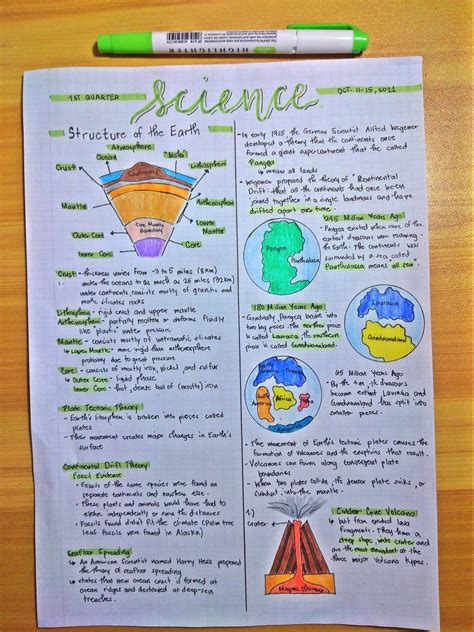 HIGHLIGHTER
1ST QUARTER
science
OCT. 11-15, 2021
Structure of the Earth
Atmosphere
Ocean
"Moho"
Crust
Continents
Lithosphere
Mantle
Asthenosphere
Lower
Mantle
Outer Core
Core
Inner Core
Crust - thickness varies from ~3 to 5 miles (8km)
under the oceans to as much as 25 miles
under continents, consists mostly of granitic and
mafic silicates rocks
Lithosphere - rigid crust and upper mantle
Asthenosphere - partially molten or deforms fluidly
like "plastic" under pressure.
Mantle - consists mostly of ultramafic silicates
Lower Mantle - more rigid than asthenosphere
probably due to great pressure
Core - consists of mostly iron, nickel and sulfur
Outer Core - liquid phase
Inner Core - hot, dense ball of (mostly) iron
Plate Tectonic Theory
- Earth's lithosphere is broken into pieces called
plates
- Their movement creates major changes in Earth's
surface
Continental Drift Theory
Fossil Evidence
- Fossils of the same species were found on
separate continents and nowhere else.
- These plants and animals would have had to
evolve independently or swim the distances
- Fossils found didn't fit the climate (Palm tree
leaf fossils were found in Alaska)
Seafloor Spreading
- An American Scientist named Harry Hess proposed
the theory of seafloor spreading
- states that new ocean crust is formed at
ocean ridges and destroyed at deep-sea
trenches.
- In early 1915, the German Scientist Alfred Wegener
developed a theory that the continents once
formed a giant supercontinent that he called
Pangea
means all lands
- Wegener proposed the theory of "Continental
Drift" that all the continents had once been
joined together in a single landmass and have
drifted apart over time.
245 Million Years Ago
Pangea
Panthalassa
- Pangea existed when some of the
earliest dinosaurs were roaming
the Earth. The continents was
surrounded by a sea called
Panthalassa means all sea.
180 Million Years Ago
- Gradually, Pangea broke into
two big pieces, the northern piece
is called Laurasia, the southern
piece is called Gondwanaland.
Laurasia
Gondwanaland
South
America
Africa
65 Million Years Ago
- By the time dinosaurs
became extinct Laurasia and
Gondwanaland has split into
smaller pieces.
- The movement of Earth's tectonic plates causes the
formation of volcanoes and the eruptions that result.
- Volcanoes can form along convergent plate
boundaries
- When two plates collide, the denser plate sinks, or
subduct into the mantle.
1.)
Crater
Magma Chamber
Cinder Cone Volcano
built from ejected lava
fragments. They have a
steep slope, wide crater and
are the most abundant of the
three major volcano types.